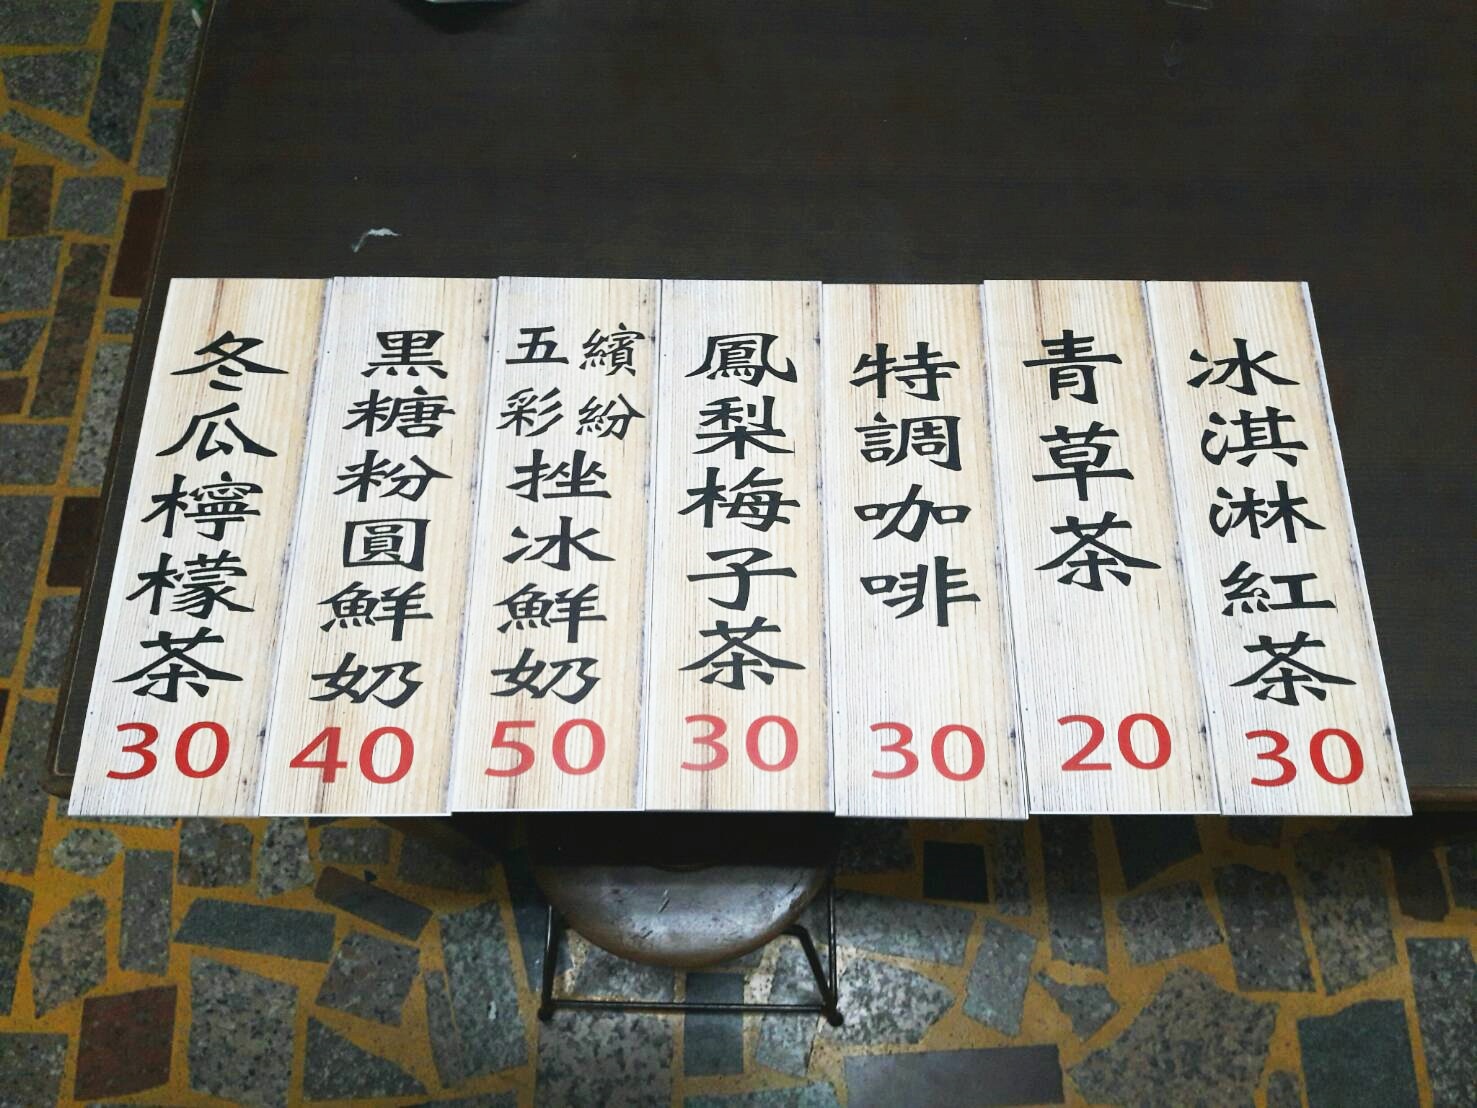 冰淇淋紅茶
30
青草茶
20
特調咖啡
30
鳳梨梅子茶
30
繽紛
五彩
挫冰鮮奶
50
黑糖粉圓鮮奶
40
冬瓜檸檬茶
30